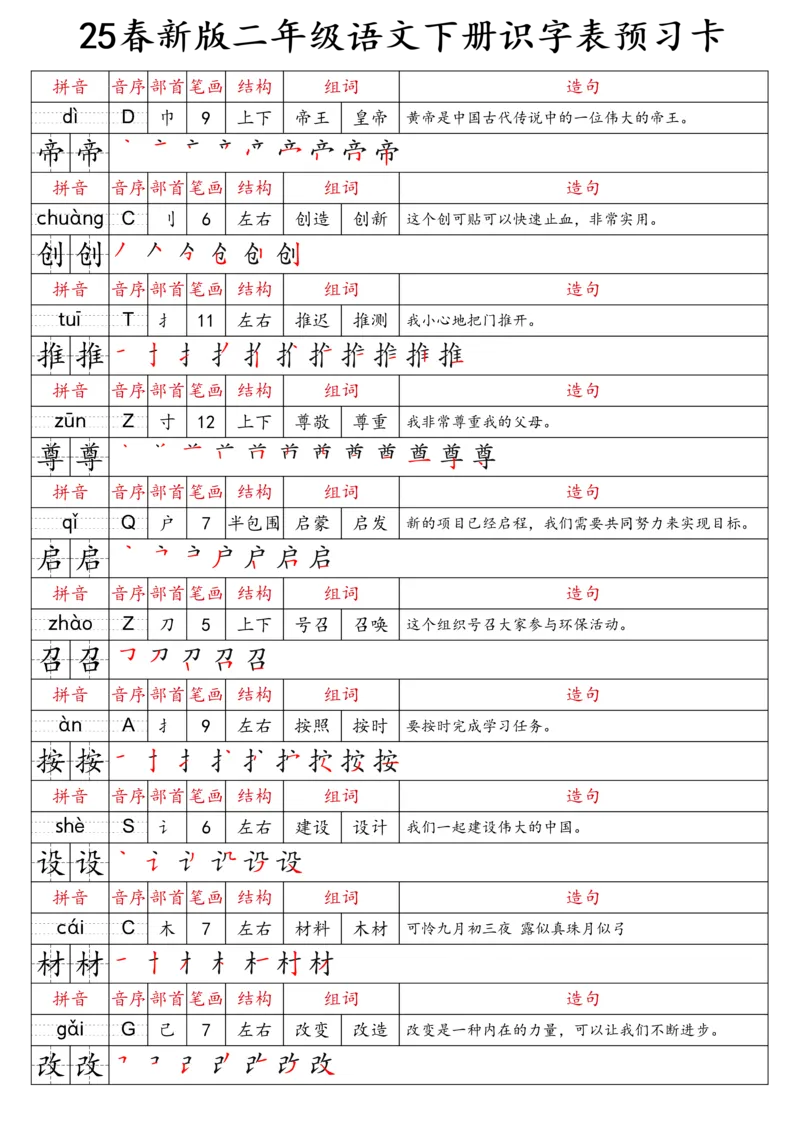 25春新版二年级语文下册识字表预习卡
拼音 音序 部首 笔画 结构 组词 造句
dì D 巾 9 上下 帝王 皇帝 黄帝是中国古代传说中的一位伟大的帝王。
帝 帝
拼音 音序 部首 笔画 结构 组词 造句
chuàng C 刂 6 左右 创造 创新 这个创可贴可以快速止血，非常实用。
创 创
拼音 音序 部首 笔画 结构 组词 造句
tuī T 扌 11 左右 推迟 推测 我小心地把门推开。
推 推
拼音 音序 部首 笔画 结构 组词 造句
zūn Z 寸 12 上下 尊敬 尊重 我非常尊重我的父母。
尊 尊
拼音 音序 部首 笔画 结构 组词 造句
qǐ Q 户 7 半包围 启蒙 启发 新的项目已经启程，我们需要共同努力来实现目标。
启 启
拼音 音序 部首 笔画 结构 组词 造句
zhào Z 刀 5 上下 号召 召唤 这个组织号召大家参与环保活动。
召 召
拼音 音序 部首 笔画 结构 组词 造句
àn A 扌 9 左右 按照 按时 要按时完成学习任务。
按 按
拼音 音序 部首 笔画 结构 组词 造句
shè S 讠 6 左右 建设 设计 我们一起建设伟大的中国。
设 设
拼音 音序 部首 笔画 结构 组词 造句
cái C 木 7 左右 材料 木材 可怜九月初三夜 露似真珠月似弓
材 材
拼音 音序 部首 笔画 结构 组词 造句
gǎi G 己 7 左右 改变 改造 改变是一种内在的力量，可以让我们不断进步。
改 改